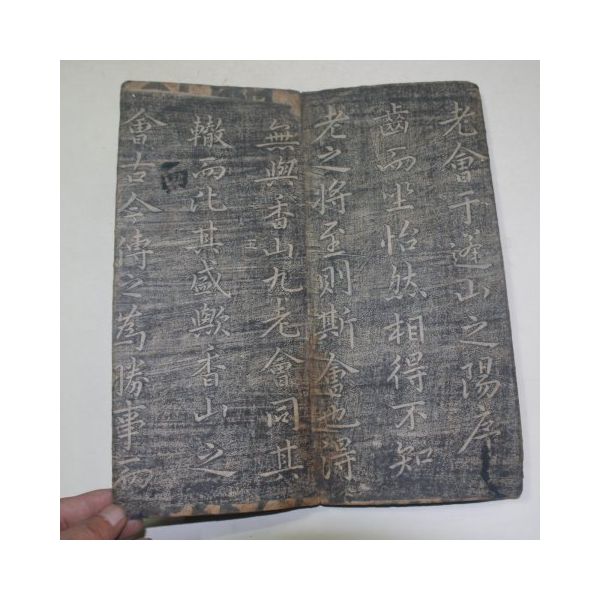 老會于蓬山之陽序
齒而坐怡然相得不知
老之將至則斯會也得
無與香山九老會同其
轍而比其盛歟香山之
會古今傳之爲勝事而